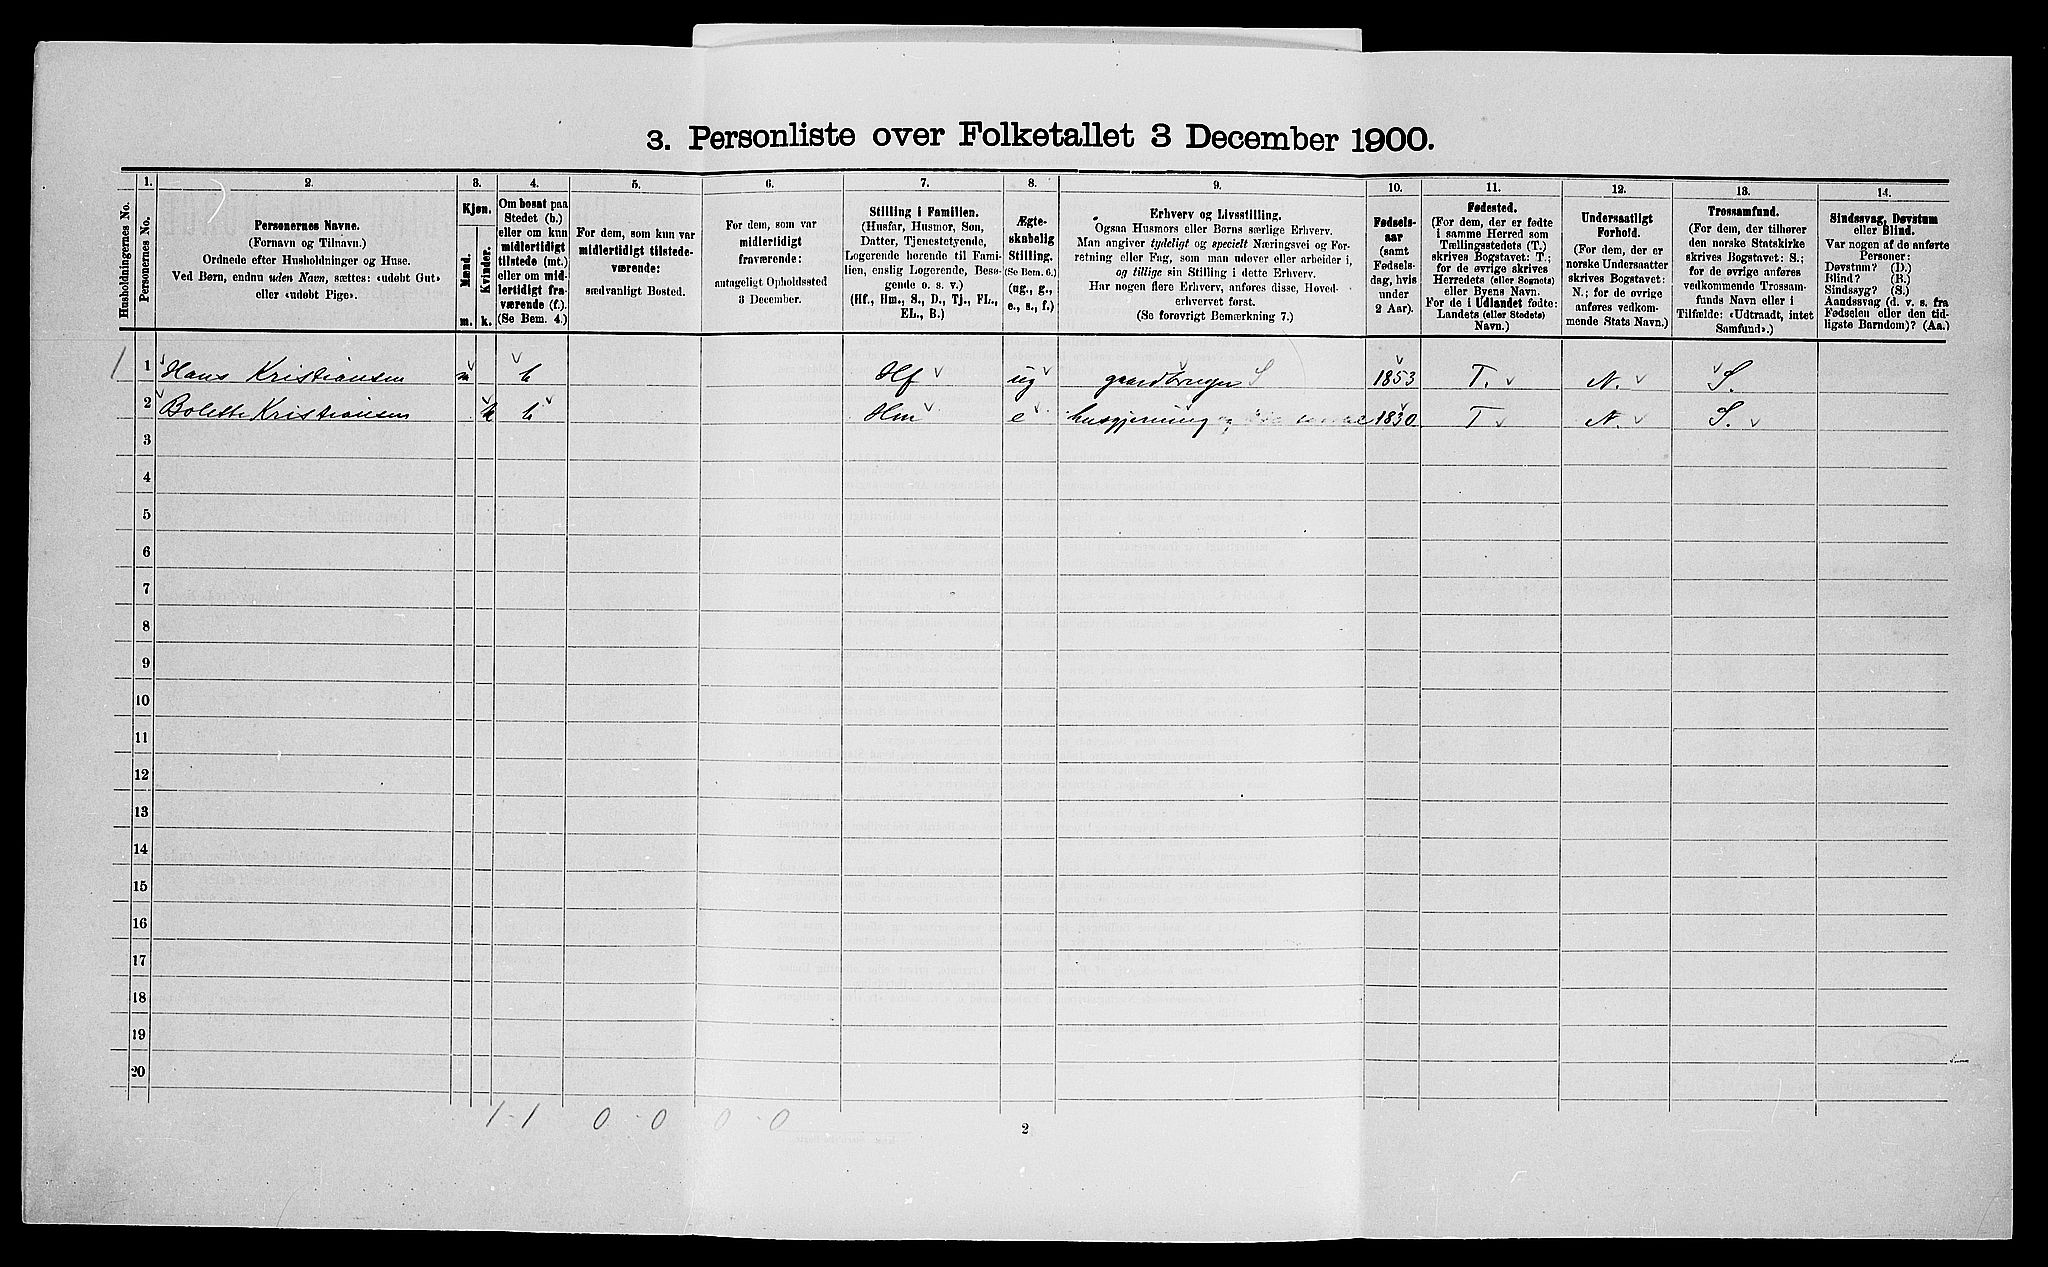 3. Personliste over Folketallet 3 December 1900.
1. 2. 3. 4. 5. 6. 7. 8. 9. 10. 11. 12. 13. 14.
Husholdningernes No.
Personernes No.
Personernes Navne.
(Fornavn og Tilnavn.)
Ordnede efter Husholdninger og Huse.
Ved Børn, endnu uden Navn, sættes: «udøbt Gut»
eller «udøbt Pige».
Kjøn.
Mænd.
Kvinder.
m. k.
Om bosat paa
Stedet (b.)
eller om kun
midlertidigt
tilstede (mt.)
eller om mid-
lertidigt fra-
værende (f.).
(Se Bem. 4.)
For dem, som kun var
midlertidigt tilstede-
værende:
sædvanligt Bosted.
For dem, som var
midlertidigt
fraværende:
antageligt Opholdssted
3 December.
Stilling i Familien.
(Husfar, Husmor, Søn,
Datter, Tjenestetyende,
Logerende hørende til Fami-
lien, enslig Logerende, Besø-
gende o. s. v.)
(Hf., Hm., S., D., Tj., FL.,
EL., B.)
Ægte-
skabelig
Stilling.
(Se Bem. 6.)
(ug., g.,
e., s., f.)
Erhverv og Livsstilling.
Ogsaa Husmors eller Børns særlige Erhverv.
Man angiver tydeligt og specielt Næringsvei og For-
retning eller Fag, som man udøver eller arbeider i,
og tillige sin Stilling i dette Erhverv.
Har nogen flere Erhverv, anføres disse, Hoved-
erhvervet først.
(Se forøvrigt Bemærkning 7.)
Fødsels-
aar
(samt
Fødsels-
dag, hvis
under
2 Aar).
Fødested.
(For dem, der er fødte
i samme Herred som
Tællingsstedets (T.)
skrives Bogstavet: T.;
for de øvrige skrives
Herredets (eller Sognets)
eller Byens Navn.
For de i Udlandet fødte:
Landets (eller Stedets)
Navn.)
Undersaatligt
Forhold.
(For dem, der er
norske Undersaatter
skrives Bogstavet:
N.; for de øvrige
anføres vedkom-
mende Stats Navn.)
Trossamfund.
(For dem, der tilhører
den norske Statskirke
skrives Bogstavet: S.;
for de øvrige anføres
vedkommende Trossam-
funds Navn eller i
Tilfælde: «Udtraadt, intet
Samfund».)
Sindssvag, Døvstum
eller Blind.
Var nogen af de anførte
Personer:
Døvstum? (D.)
Blind? (B.)
Sindssyg? (S.)
Aandssvag (d. v. s. fra
Fødselen eller den tid-
ligste Barndom)? (Aa.)
1 1 Hans Kristiansen m b Hf ug gaardbruger S 1853 T. N. S.
2 Bolette Kristiansen k b Hm e husgjerning og 1830 T N. S.
3
4
5
6
7
8
9
10
11
12
13
14
15
16
17
18
19
20
1 - 1 0 - 0 0 - 0
2